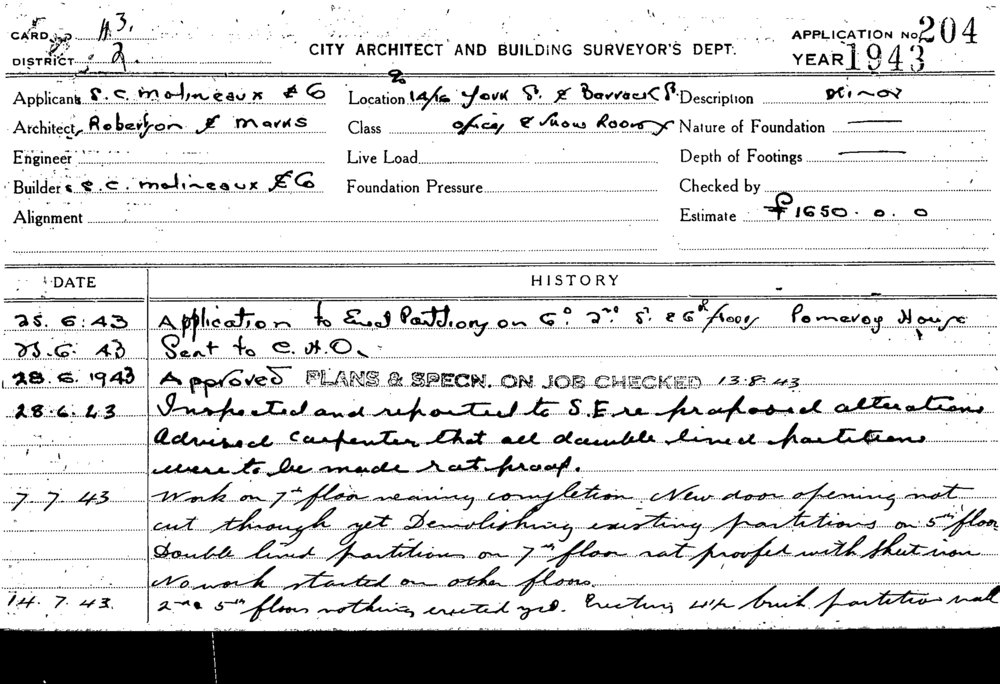 CARD H3.
DISTRICT 2.
CITY ARCHITECT AND BUILDING SURVEYOR'S DEPT.
APPLICATION No. 204
YEAR 1943
Applicant S.C. Molineaux & Co
Location 14/16 York St. & Barrack St.
Description Minor
Architect Robertson & Marks
Class Offices & Show Rooms
Nature of Foundation —
Engineer
Live Load
Depth of Footings —
Builder S.C. Molineaux & Co
Foundation Pressure
Checked by
Alignment
Estimate £1650.0.0
DATE HISTORY
25.6.43 Application to Erect Partitions on 2nd 5. & 6th floors Pomeroy House
25.6.43 Sent to C.H.O.
28.6.1943 Approved PLANS & SPECN. ON JOB CHECKED 13.8.43
28.6.43 Inspected and reported to S.E. re proposed alterations
Advised carpenter that all double lined partitions
were to be made rat proof.
7.7.43 Work on 7th floor nearing completion New door opening not
cut through yet Demolishing existing partitions on 5th floor
Double lined partitions on 7th floor rat proofed with sheet iron
No work started on other floors.
14.7.43. 2nd & 5th floors nothing erected yet. Erecting 4½ brick partition wall